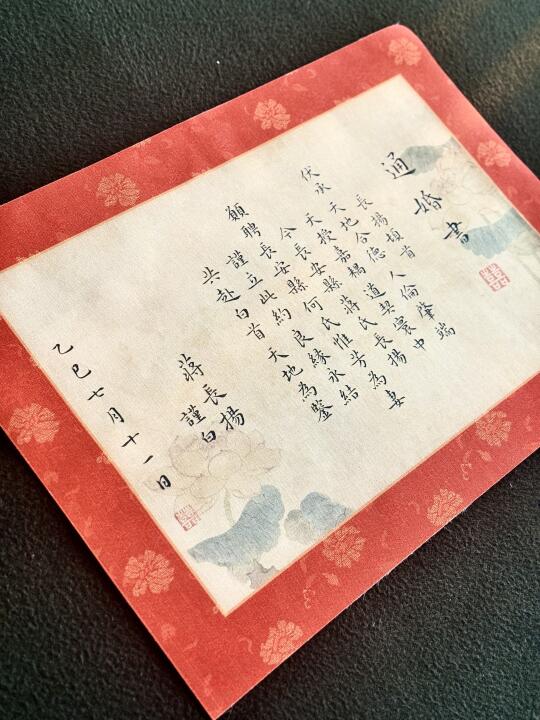 通婚書
長揚頓首 人倫肇端
天地合德 道契寰中
伏承 天授嘉耦
今長安縣何氏惟芳
願聘 蔣氏長揚為妻
謹立此約 良緣永結
共赴白首 天地為鑒
蔣長揚
謹白
乙巳七月十一日